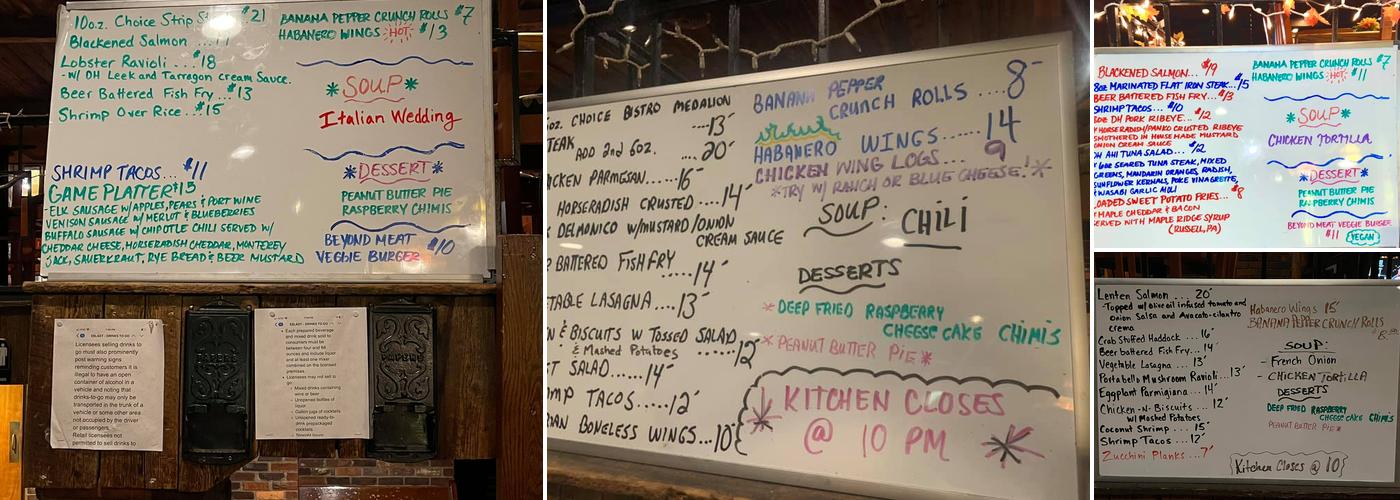 10oz. Choice Strip $21
Blackened Salmon ...
Lobster Ravioli ... $18
-w/ DH Leek and Tarragon cream Sauce.
Beer Battered Fish Fry ... $13
Shrimp Over Rice ... $15
SHRIMP TACOS... $11
GAME PLATTER $15
-ELK SAUSAGE W/APPLES, PEARS & PORT WINE
VENISON SAUSAGE W/ MERLOT & BLUEBERRIES
BUFFALO SAUSAGE W/ CHIPOTLE CHILI SERVED W/
CHEDDAR CHEESE, HORSERADISH CHEDDAR, MONTEREY
JACK, SAUERKRAUT, RYE BREAD & BEER MUSTARD
BANANA PEPPER CRUNCH ROLLS $7
HABANERO WINGS HOT $13
*SOUP*
Italian Wedding
*DESSERT*
PEANUT BUTTER PIE
RASPBERRY CHIMIS
BEYOND MEAT
VEGGIE BURGER $10
Licensees selling drinks to
go must also prominently
post warning signs
reminding customers it is
illegal to have an open
container of alcohol in a
vehicle and noting that
drinks-to-go may only be
transported in the trunk of a
vehicle or some other area
not occupied by the driver
or passengers.
Retail licensees not
permitted to sell drinks to
Each prepared beverage
and mixed drink sold to
consumers must be
between four and 64
ounces and include liquor
and at least one mixer
combined on the licensed
premises.
Licensees may not sell to
go:
Mixed drinks containing
wine or beer
Unopened bottles of
liquor
Gallon jugs of cocktails
Unopened ready-to-
drink prepackaged
cocktails
PAPERS
oz. CHOICE BISTRO MEDALION
TEAK ....13
ADD 2nd 6oz. ....20
ICKEN PARMESAN.....16
HORSERADISH CRUSTED.....14
DELMONICO W/MUSTARD/ONION
CREAM SAUCE
BATTERED FISH FRY
.....14
TABLE LASAGNA....13
N & BISCUITS W TOSSED SALAD
& Mashed Potatoes ......12
T SALAD.....14
MP TACOS.....12
AN BONELESS WINGS...10
BANANA PEPPER
CRUNCH ROLLS ....8
HABANERO WINGS......14
CHICKEN WING LOGS... 9
*TRY W/ RANCH OR BLUE CHEESE!*
SOUP: CHILI
DESSERTS
*DEEP FRIED RASPBERRY
CHEESE CAKE CHIMIS
*PEANUT BUTTER PIE*
KITCHEN CLOSES
@ 10 PM
BLACKENED SALMON... $19
8oz MARINATED FLAT IRON STEAK...$15
BEER BATTERED FISH FRY...$13
SHRIMP TACOS... $10
DH PORK RIBEYE... $12
HORSERADISH/PANKO CRUSTED RIBEYE
SMOTHERED IN HOUSE MADE MUSTARD
ONION CREAM SAUCE
AHI TUNA SALAD... $12
6oz SEARED TUNA STEAK, MIXED
GREENS, MANDARIN ORANGES, RADISH,
SUNFLOWER KERNALS, POKE VINAGRETTE,
& WASABI GARLIC AIOLI
OADED SWEET POTATO FRIES... $8
MAPLE CHEDDAR & BACON
SERVED WITH MAPLE RIDGE SYRUP
(RUSSELL, PA)
BANANA PEPPER CRUNCH ROLLS $7
HABANERO WINGS HOT $11
*SOUP*
CHICKEN TORTILLA
*DESSERT*
PEANUT BUTTER PIE
RASPBERRY CHIMIS
BEYOND MEAT VEGGIE BURGER
$11 VEGAN
Lenten Salmon ... 20
-Topped w/ olive oil infused tomato and
onion Salsa and Avocato-cilantro
crema
Crab Stuffed Haddock ... 16
Beer battered Fish Fry... 14
Vegetable Lasagna ... 13
Portabello Mushroom Ravioli...13
Eggplant Parmigiana ... 14
Chicken-N-Biscuits ... 12
w/ Mashed Potatoes
Coconut Shrimp ... 15
Shrimp Tacos ... 12
Zucchini Planks ... 7
Habanero Wings 15
BANANA PEPPER CRUNCH ROLLS
8
SOUP:
- French Onion
- CHICKEN TORTILLA
DESSERTS
DEEP FRIED RASPBERRY
CHEESE CAKE CHIMIS
PEANUT BUTTER PIE*
Kitchen Closes @ 10